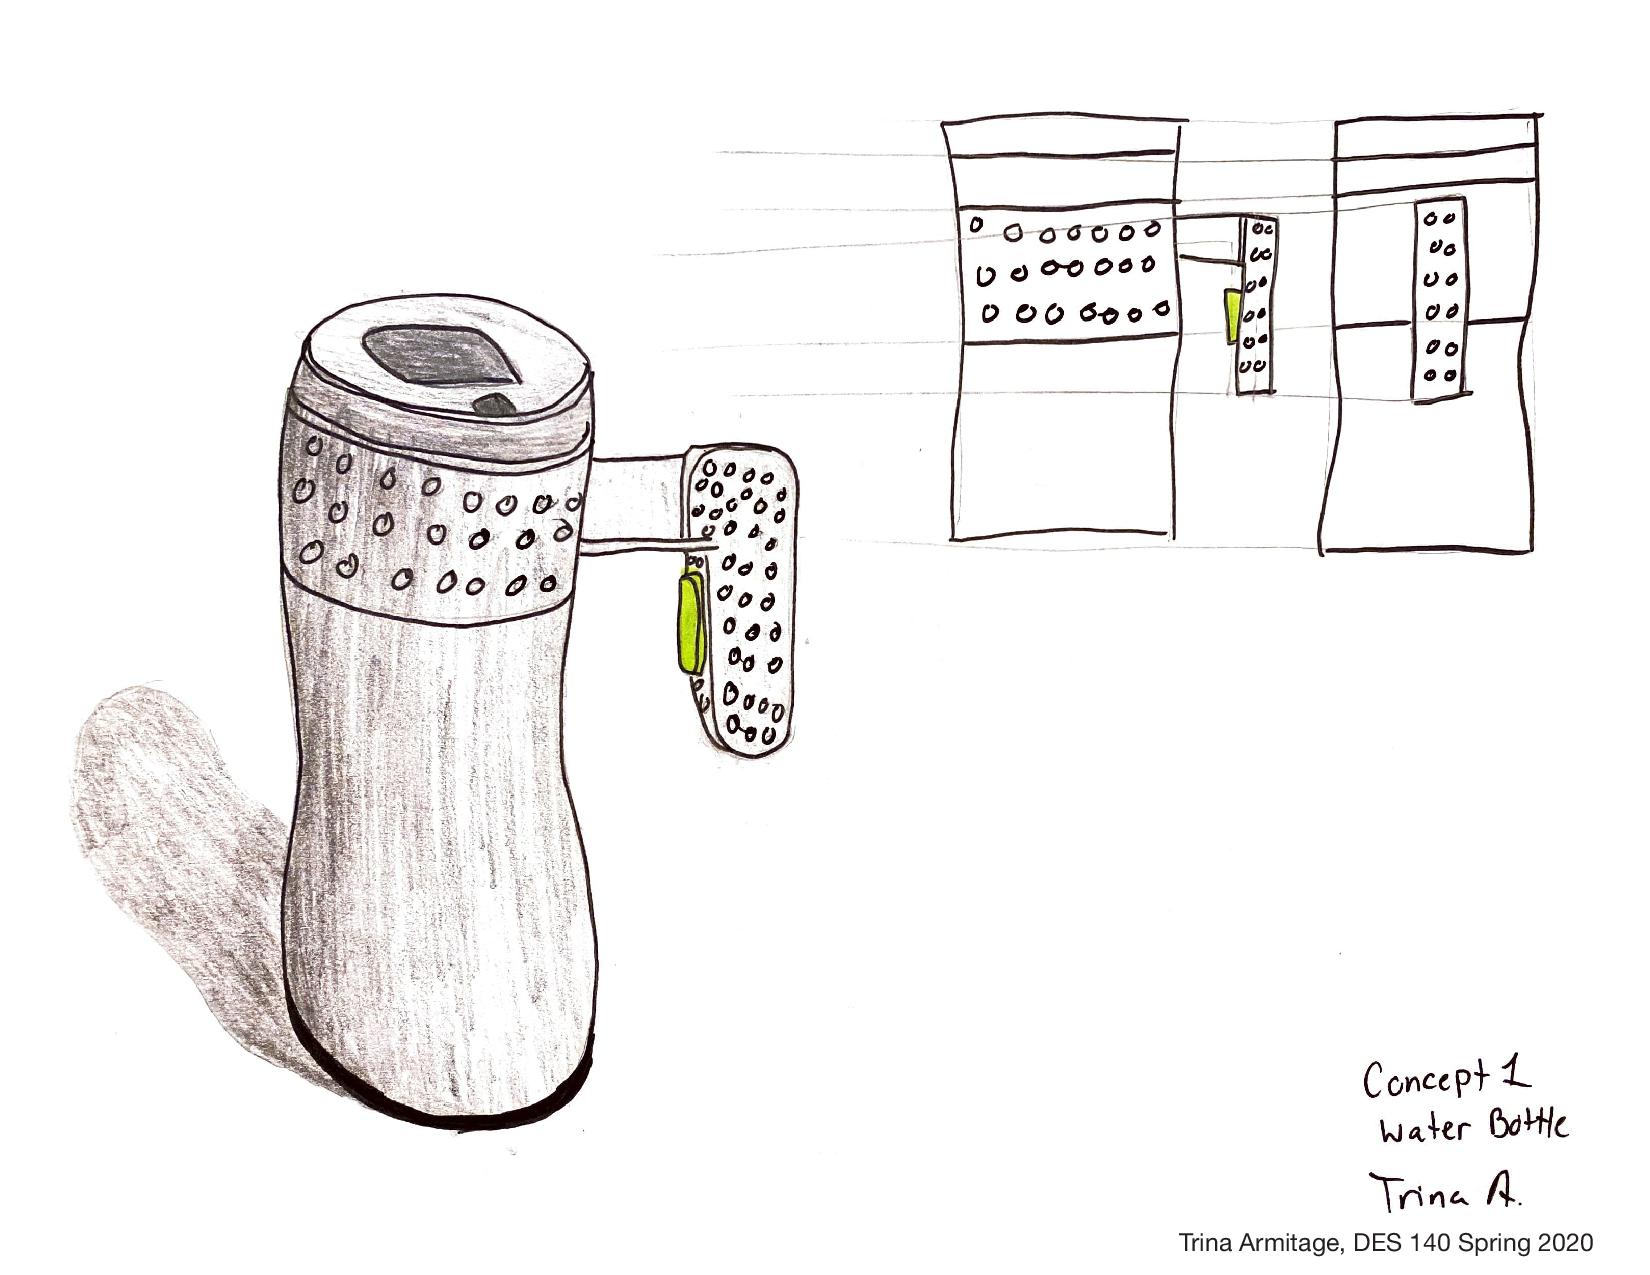 Concept 1
Water Bottle
Trina A.
Trina Armitage, DES 140 Spring 2020